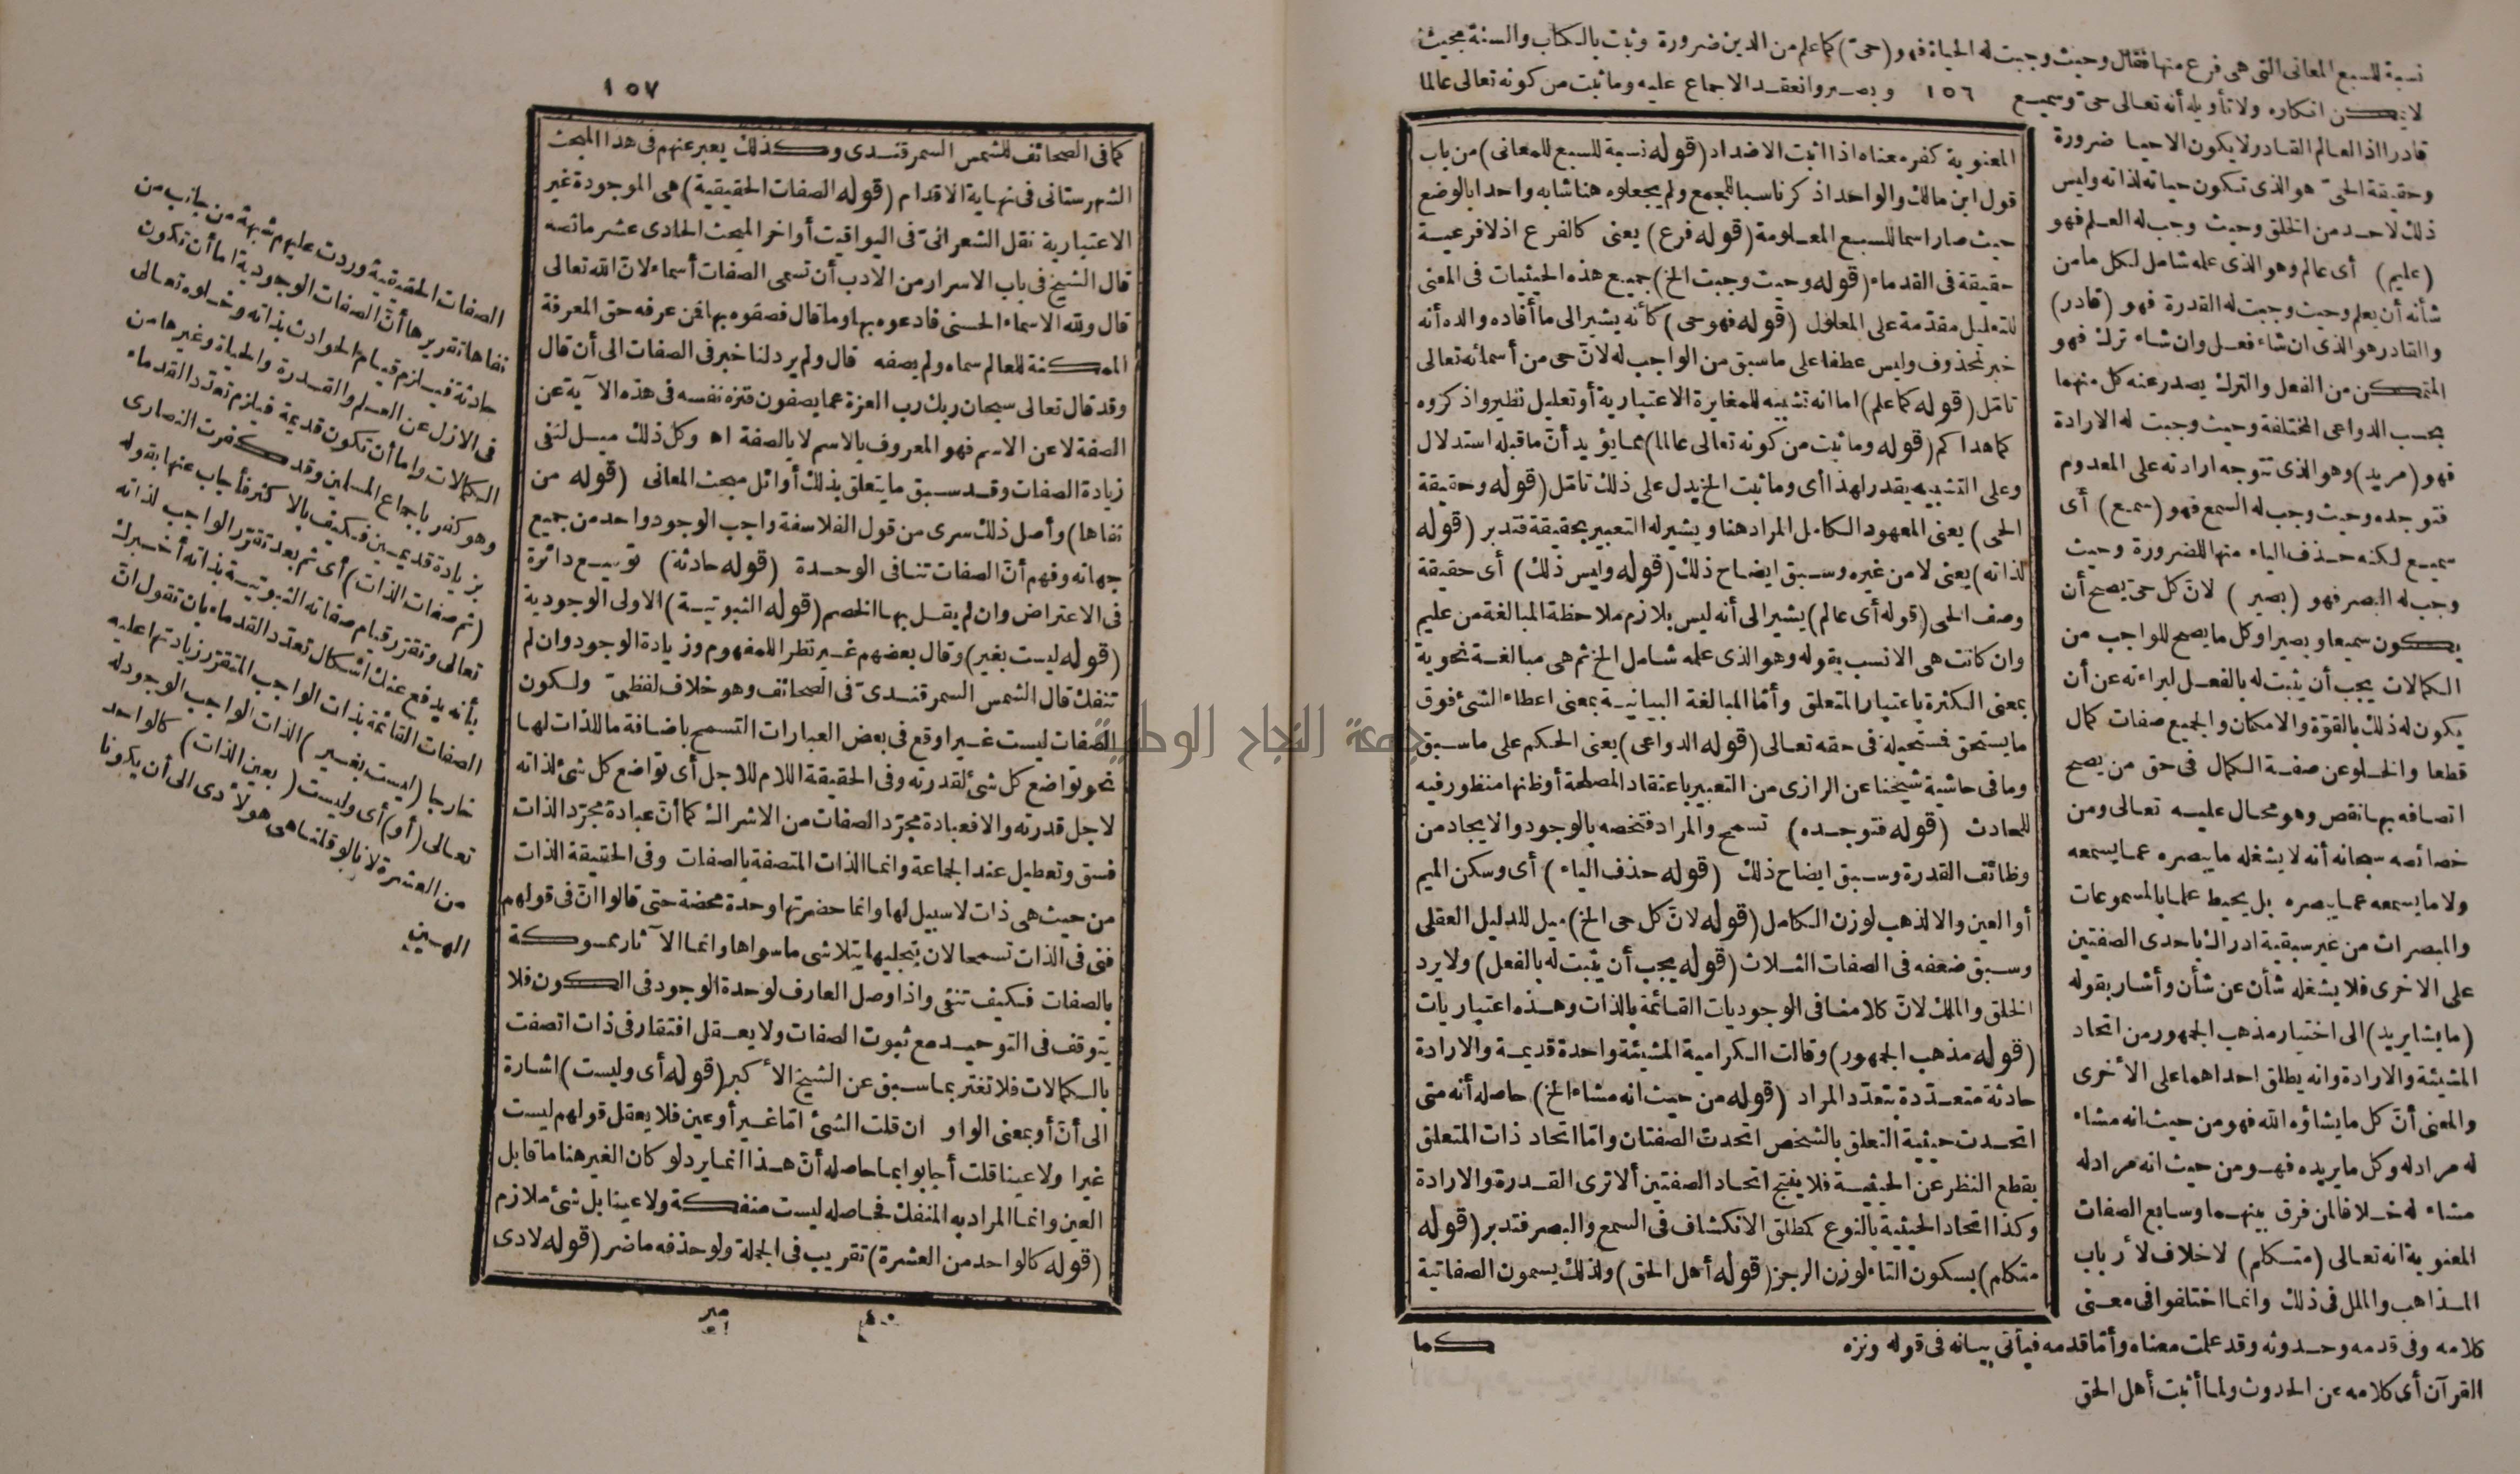 نسبة للسبع المعانى التى هى فرع منها فقال وحيث وجبت له الحياة فهو (حىّ) كما علم من الدين ضرورة وثبت بالكتاب والسنة بحيث
لا يمكن انكاره ولا تأويله أنه تعالى حىّ وسميع
١٥٦
وبصير وانعقد الاجماع عليه وما ثبت من كونه تعالى عالما
قادرا اذ العالم القادر لا يكون الا حيا ضرورة
وحقيقة الحىّ هو الذى تكون حياته لذاته وليس
ذلك لاحد من الخلق وحيث وجب له العلم فهو
(عليم) أى عالم وهو الذى علمه شامل لكل ما من
شأنه أن يعلم وحيث وجبت له القدرة فهو (قادر)
والقادر هو الذى ان شاء فعل وان شاء ترك فهو
المتمكن من الفعل والترك يصدر عنه كل منهما
بحسب الدواعى المختلفة وحيث وجبت له الارادة
فهو (مريد) وهو الذى تتوجه ارادته على المعدوم
فتوجده وحيث وجب له السمع فهو (سمع) أى
سميع لكنه حذف الياء منها للضرورة وحيث
وجب له البصر فهو (بصير) لانّ كل حىّ يصح أن
يكون سميعا وبصيرا وكل ما يصح للواجب من
الكمالات يجب أن يثبت له بالفعل لبراءته عن أن
يكون له ذلك بالقوّة والامكان والجميع صفات كمال
قطعا والخلو عن صفة الكمال فى حق من يصح
اتصافه بها نقص وهو محال عليه تعالى ومن
خصائصه سبحانه أنه لا يشغله ما يبصره عما يسمعه
ولا ما يسمعه عما يبصره بل يحيط علما بالمسموعات
والمبصرات من غير سبقية ادراك باحدى الصفتين
على الاخرى فلا يشغله شأن عن شأن وأشار بقوله
(ما يشا يريد) الى اختيار مذهب الجمهور من اتحاد
المشيئة والارادة وانه يطلق احداهما على الأخرى
والمعنى أنّ كل ما يشاؤه الله فهو من حيث انه مشاء
له مراد له وكل ما يريده فهو من حيث انه مراد له
مشاء له خلافا لمن فرق بينهما وسابع الصفات
المعنوية انه تعالى (متكلم) لا خلاف لأرباب
المذاهب والملل فى ذلك وانما اختلفوا فى معنى
كلامه وفى قدمه وحدوثه وقد علمت معناه وأمّا قدمه فيأتى بيانه فى قوله ونزه
القرآن أى كلامه عن الحدوث ولما أثبت أهل الحق
المعنوية كفر معناه اذا اثبت الاضداد (قوله نسبة للسبع للمعانى) من باب
قول ابن مالك والواحد اذكر ناسبا للجمع ولم يجعلوه هنا شابه واحدا بالوضع
حيث صار اسما للسبع المعلومة (قوله فرع) يعنى كالفرع اذ لا فرعية
حقيقة فى القدماء (قوله وحيث وجبت الخ) جميع هذه الحيثيات فى المعنى
للتعليل مقدّمة على المعلول (قوله فهو حى) كأنه يشير الى ما أفاده والده أنه
خبر لمحذوف وليس عطفا على ما سبق من الواجب له لانّ حى من أسمائه تعالى
تامّل (قوله كما علم) اما انه تشبيه للمغايرة الاعتبارية أو تعليل نظير واذكروه
كما هداكم (قوله وما ثبت من كونه تعالى عالما) مما يؤيد أنّ ما قبله استدلال
وعلى التشبيه يقدر لهذا أى وما ثبت الخ يدل على ذلك تامّل (قوله وحقيقة
الحى) يعنى المعهود الكامل المراد هنا ويشير له التعبير بحقيقة فتدبر (قوله
لذاته) يعنى لا من غيره وسبق ايضاح ذلك (قوله وليس ذلك) أى حقيقة
وصف الحى (قوله أى عالم) يشير الى أنه ليس بلازم ملاحظة المبالغة من عليم
وان كانت هى الانسب بقوله وهو الذى علمه شامل الخ ثم هى مبالغة نحوية
بمعنى الكثرة باعتبار المتعلق وأمّا المبالغة البيانية بمعنى اعطاء الشئ فوق
ما يستحق فمستحيلة فى حقه تعالى (قوله الدواعى) يعنى الحكم على ما سبق
وما فى حاشية شيخنا عن الرازى من التعبير باعتقاد المصلحة أو ظنها منظور فيه
للحادث (قوله فتوجده) تسمح والمراد فتخصه بالوجود والايجاد من
وظائف القدرة وسبق ايضاح ذلك (قوله حذف الياء) أى وسكن الميم
أو العين والا لذهب لوزن الكامل (قوله لانّ كل حى الخ) ميل للدليل العقلى
وسبق ضعفه فى الصفات الثلاث (قوله يجب أن يثبت له بالفعل) ولا يرد
الخلق والملك لانّ كلامنا فى الوجوديات القائمة بالذات وهذه اعتباريات
(قوله مذهب الجمهور) وقالت الكرامية المشيئة واحدة قديمة والارادة
حادثة متعدّدة بتعدّد المراد (قوله من حيث انه مشاء الخ) حاصله أنه متى
اتحدت حيثية التعلق بالشخص اتحدت الصفتان وامّا اتحاد ذات المتعلق
بقطع النظر عن الحيثية فلا ينتج اتحاد الصفتين ألا ترى القدرة والارادة
وكذا اتحاد الحيثية بالنوع كمطلق الانكشاف فى السمع والبصر فتدبر (قوله
متكلم) بسكون التاء لوزن الرجز (قوله أهل الحق) ولذلك يسمون الصفاتية
كما
١٥٧
كما فى الصحائف للشمس السمرقندى وكذلك يعبر عنهم فى هذا المبحث
الشهرستانى فى نهاية الاقدام (قوله الصفات الحقيقية) هى الموجودة غير
الاعتبارية نقل الشعرانىّ فى اليواقيت أواخر المبحث الحادى عشر ما نصه
قال الشيخ فى باب الاسرار من الادب أن تسمى الصفات أسماء لانّ الله تعالى
قال ولله الاسماء الحسنى فادعوه بها وما قال فصفوه بها فمن عرفه حق المعرفة
الممكنة للعالم سماه ولم يصفه قال ولم يرد لنا خبر فى الصفات الى أن قال
وقد قال تعالى سبحان ربك رب العزة عما يصفون فنزه نفسه فى هذه الآية عن
الصفة لا عن الاسم فهو المعروف بالاسم لا بالصفة اه وكل ذلك ميل لنفى
زيادة الصفات وقد سبق ما يتعلق بذلك أوائل مبحث المعانى (قوله من
نفاها) وأصل ذلك سرى من قول الفلاسفة واجب الوجود واحد من جميع
جهاته وفهم أنّ الصفات تنافى الوحدة (قوله حادثة) توسيع دائرة
فى الاعتراض وان لم يقل بها الخصم (قوله الثبوتية) الاولى الوجودية
(قوله ليست بغير) وقال بعضهم غير نظرا للمفهوم وزيادة الوجود وان لم
تنفك قال الشمس السمرقندىّ فى الصحائف وهو خلاف لفظىّ ولكون
الصفات ليست غيرا وقع فى بعض العبارات التسمح باضافة ما للذات لها
نحو تواضع كل شئ لقدرته وفى الحقيقة اللام للاجل أى تواضع كل شئ لذاته
لاجل قدرته والا فعبادة مجرّد الصفات من الاشراك كما أنّ عبادة مجرّد الذات
فسق وتعطيل عند الجماعة وانما الذات المتصفة بالصفات وفى الحقيقة الذات
من حيث هى ذات لا سبيل لها وانما حضرتها وحدة محضة حتى قالوا انّ فى قولهم
فنى فى الذات تسمحا لان بتجليها يتلاشى ما سواها وانما الآثار ممسوكة
بالصفات فكيف تنفى واذا وصل العارف لوحدة الوجود فى الكون فلا
يتوقف فى التوحيد مع ثبوت الصفات ولا يعقل افتقار فى ذات اتصفت
بالكمالات فلا تغتر بما سبق عن الشيخ الأكبر (قوله أى وليست) اشارة
الى أنّ أو بمعنى الواو ان قلت الشئ امّا غير أو عين فلا يعقل قولهم ليست
غيرا ولا عينا قلت أجابوا بما حاصله أنّ هذا انما يرد لو كان الغير هنا ما قابل
العين وانما المراد به المنفك فحاصله ليست منفكة ولا عينا بل شئ ملازم
(قوله كالواحد من العشرة) تقريب فى الجملة ولو حذفه ما ضر (قوله لادى
٤٠ مير
الصفات الحقيقية وردت عليهم شبهة من جانب من
نفاها تقريرها أنّ الصفات الوجودية اما أن تكون
حادثة فيلزم قيام الحوادث بذاته وخلوه تعالى
فى الازل عن العلم والقدرة والحياة وغيرها من
الكمالات واما أن تكون قديمة فيلزم تعدّد القدماء
وهو كفر باجماع المسلمين وقد كفرت النصارى
بزيادة قديمين فكيف بالاكثر فأجاب عنها بقوله
(ثم صفات الذات) أى ثم بعد تقرّر الواجب لذاته
تعالى وتقرّر قيام صفاته الثبوتية بذاته أخبرك
بأنه يدفع عنك اشكال تعدّد القدماء بان تقول انّ
الصفات القائمة بذات الواجب المتقرّر زيادتها عليه
خارجا (ليست بغير) الذات الواجب الوجود له
تعالى (أو) أى وليست (بعين الذات) كالواحد
من العشرة لانا لو قلنا هى هو لأدى الى أن يكونا
الهين
جامعة النجاح الوطنية